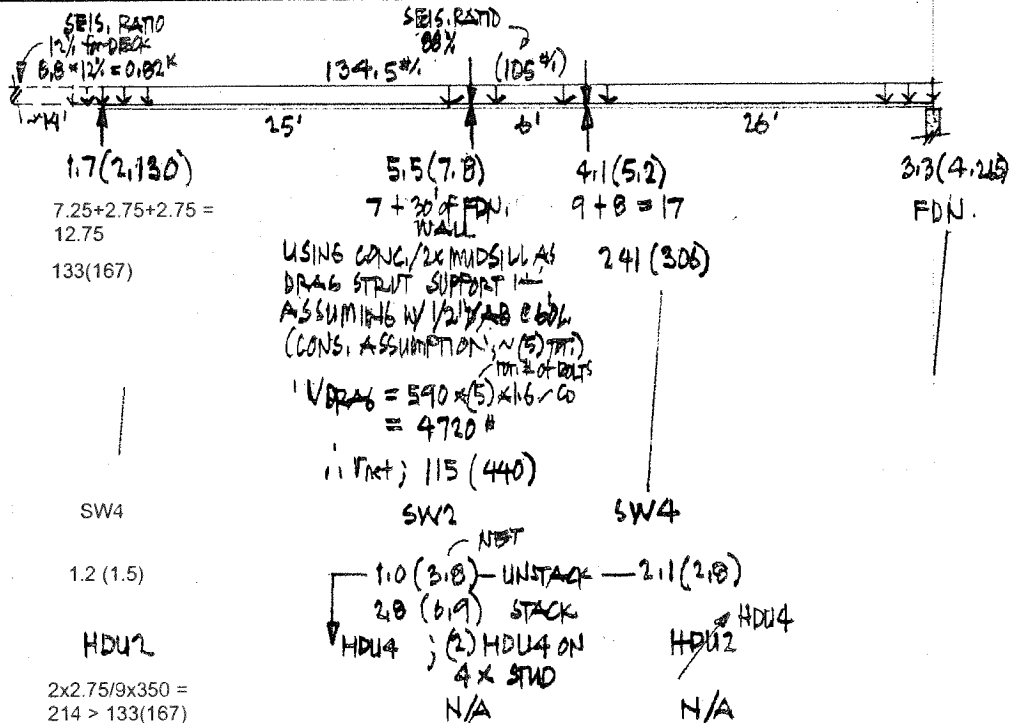 SEIS. RATIO
12% for DECK
6.8 * 12% = 0.82K
SEIS. RATIO
88%
134.5 #/1
(105 #/1)
~14'
25'
6'
26'
1.7 (2,130')
5.5 (7.8)
4.1 (5.2)
3.3 (4.265)
7.25+2.75+2.75 =
12.75
7 + 30' of FDN.
WALL
9 + 8 = 17
FDN.
133(167)
USING CONC./2x MUDSILL AS
DRAG STRUT SUPPORT
241 (306)
ASSUMING W/ 1/2"
(CONS. ASSUMPTION, ~ (5) TOT.)
TOT. # of BOLTS
VDRAG = 590 * (5) * 1.6 ~ CD
= 4720 #
∴ Vnet; 115 (440)
SW4
SW2
SW4
NET
1.2 (1.5)
1.0 (3.8) - UNSTACK - 2.1 (2.8)
2.8 (6.9) STACK
HDU2
HDU4 ; (2) HDU4 ON
4 x STUD
HDU2
HDU4
2x2.75/9x350 =
214 > 133(167)
N/A
N/A